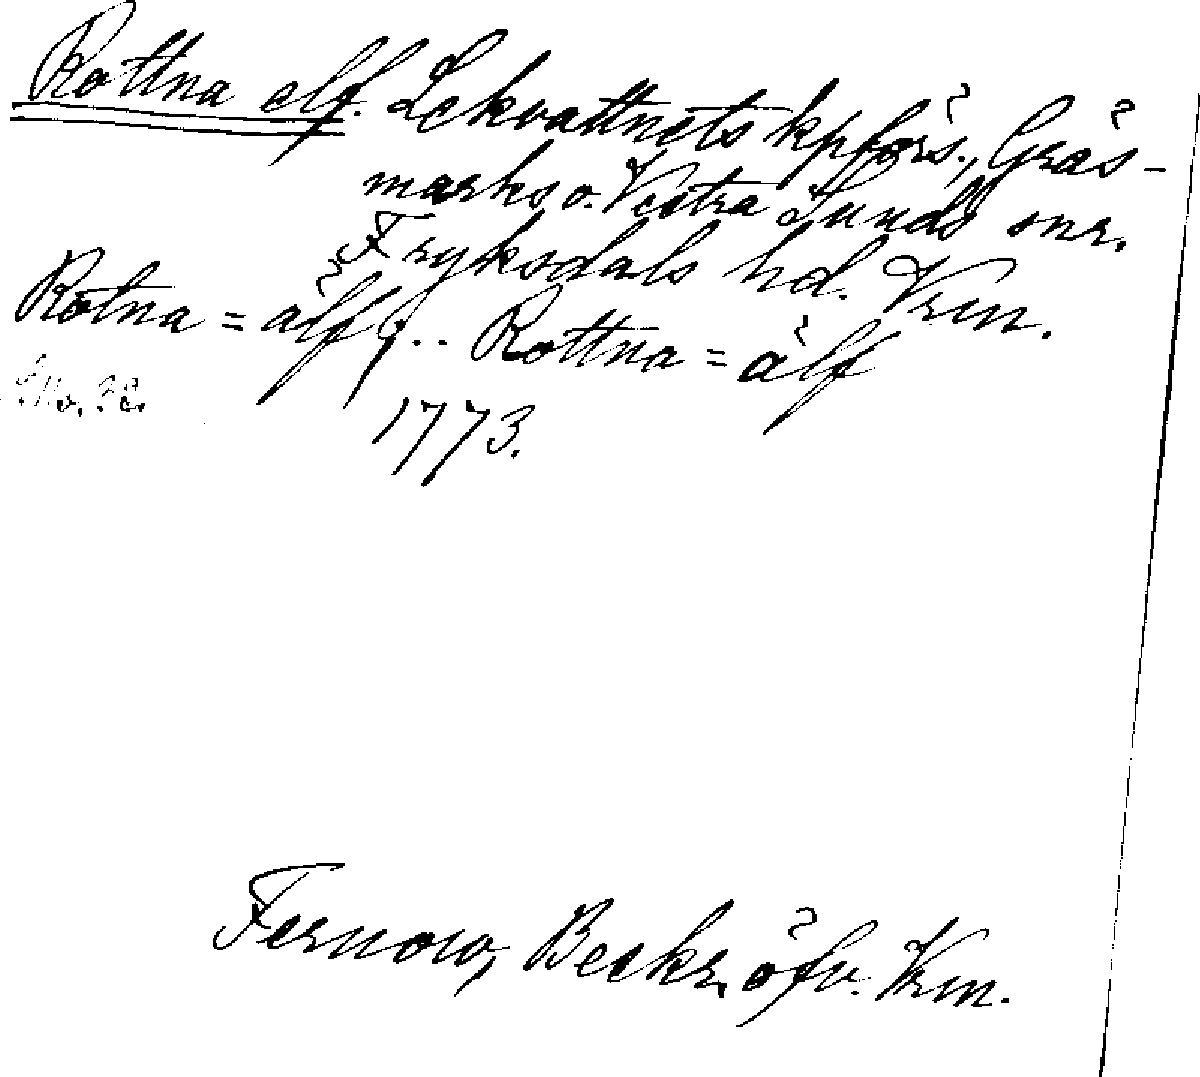 Rottna elf. Lekvattnets kpförs., Gräs-
marks o. Vestra Sunds snr.
Fryksdals hd. Vrm.
Rotna = älf, .. Rottna = älf
1773.
Fernow, Beskr. öfv. Vrm.